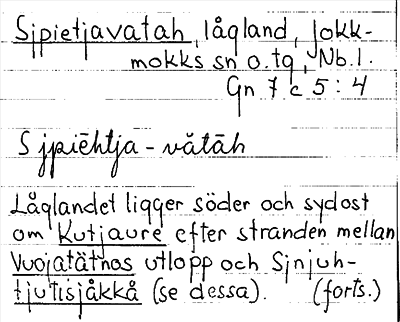 Sjpietjavatah, lågland, Jokk-
mokks sn o. tg, Nb. l.
Gn 7 c 5 : 4
Sjpiēhtja - vătāh
Låglandet ligger söder och sydost
om Kutjaure efter stranden mellan
Vuojatätnos utlopp och Sjnjuh-
tjutisjåkkå (se dessa). (forts.)